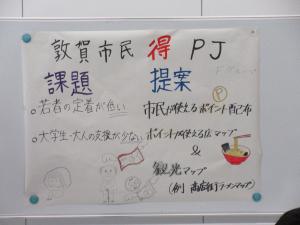 敦賀市民 得 PJ
課題 提案
○若者の定着が低い
○大学生・大人の支援が少ない
Ⓟ
市民が使えるポイント配布
ポイントが使える店マップ
&
観光マップ
(例) 商店街ラーメンマップ)